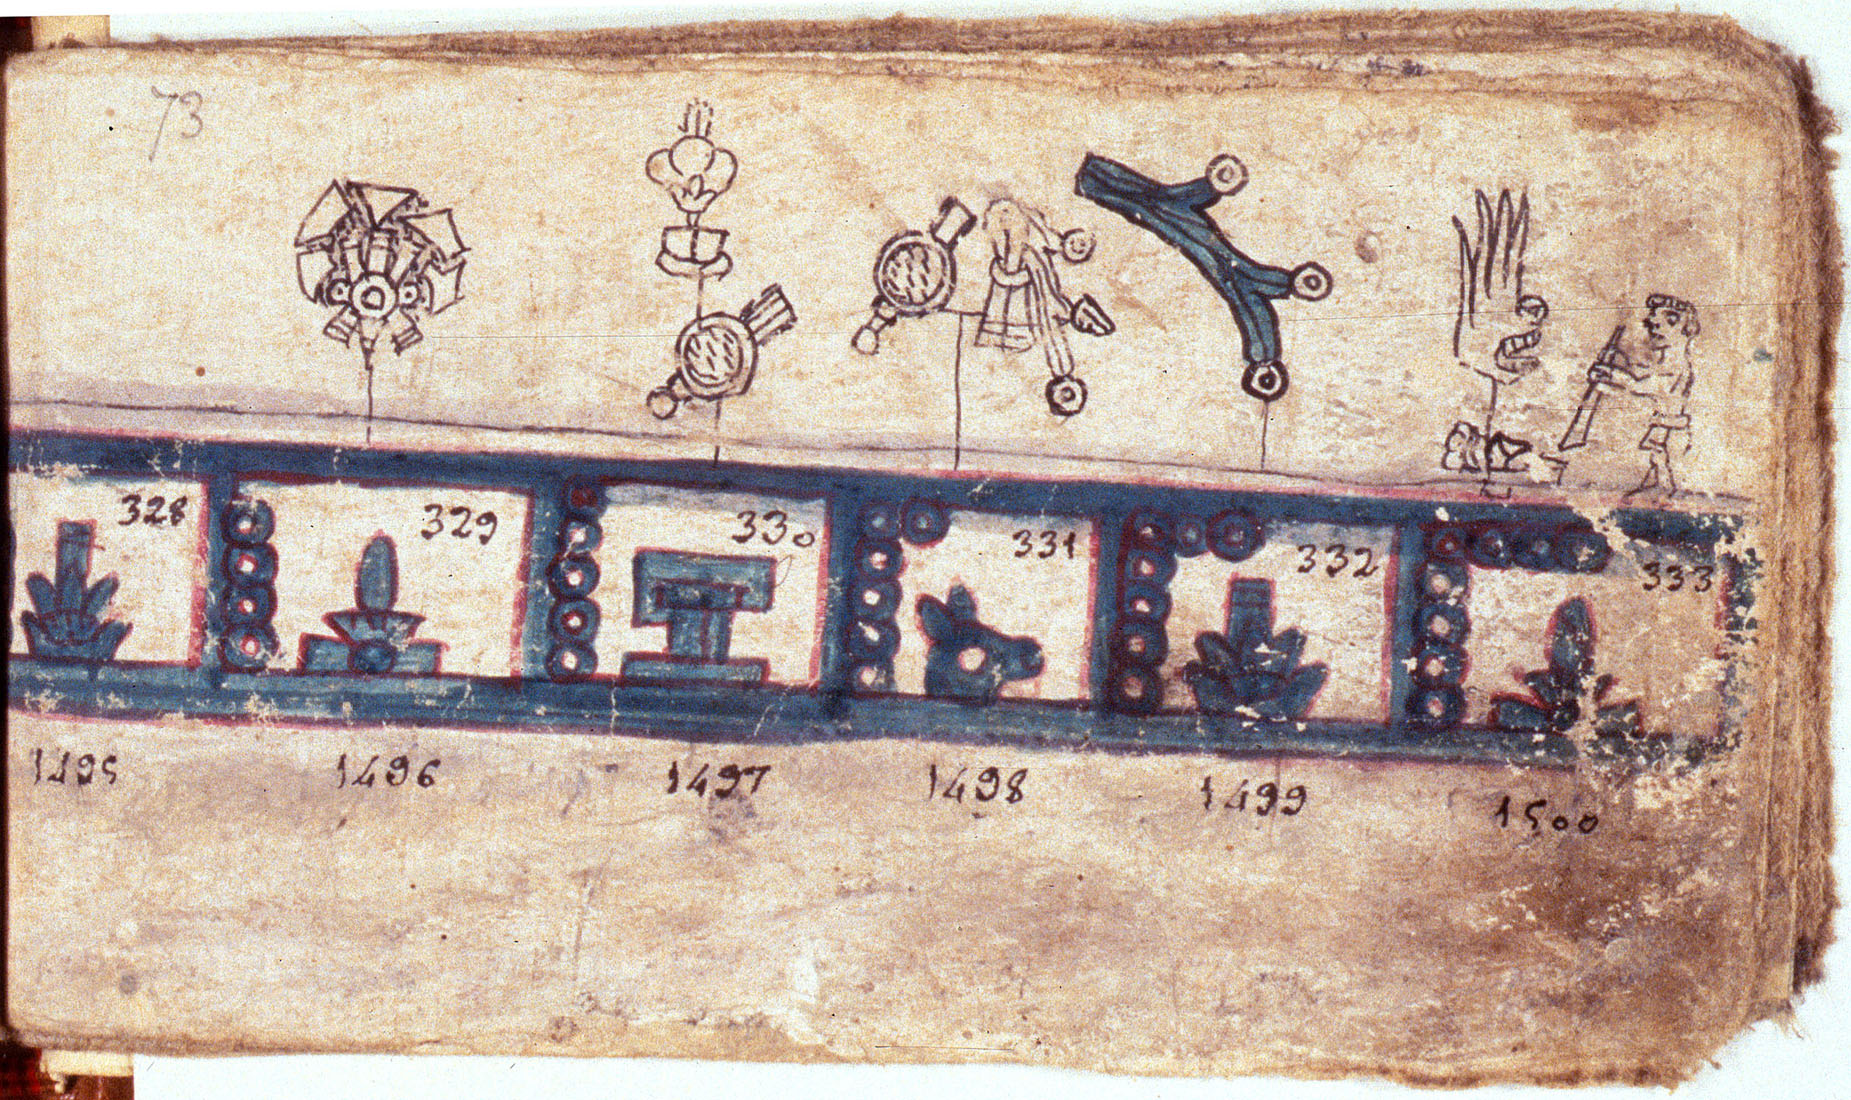 73
328 329 330 331 332 333
1495 1496 1497 1498 1499 1500